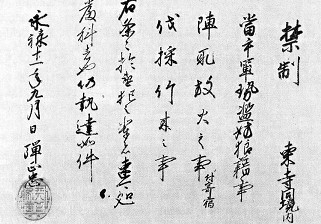 禁制
東寺同境内
當手軍勢濫妨狼藉事
陣取放火之事付寄宿
伐採竹木之事
右条々於違犯者速処
厳科者也仍執達如件
永禄十一年九月日 弾正忠